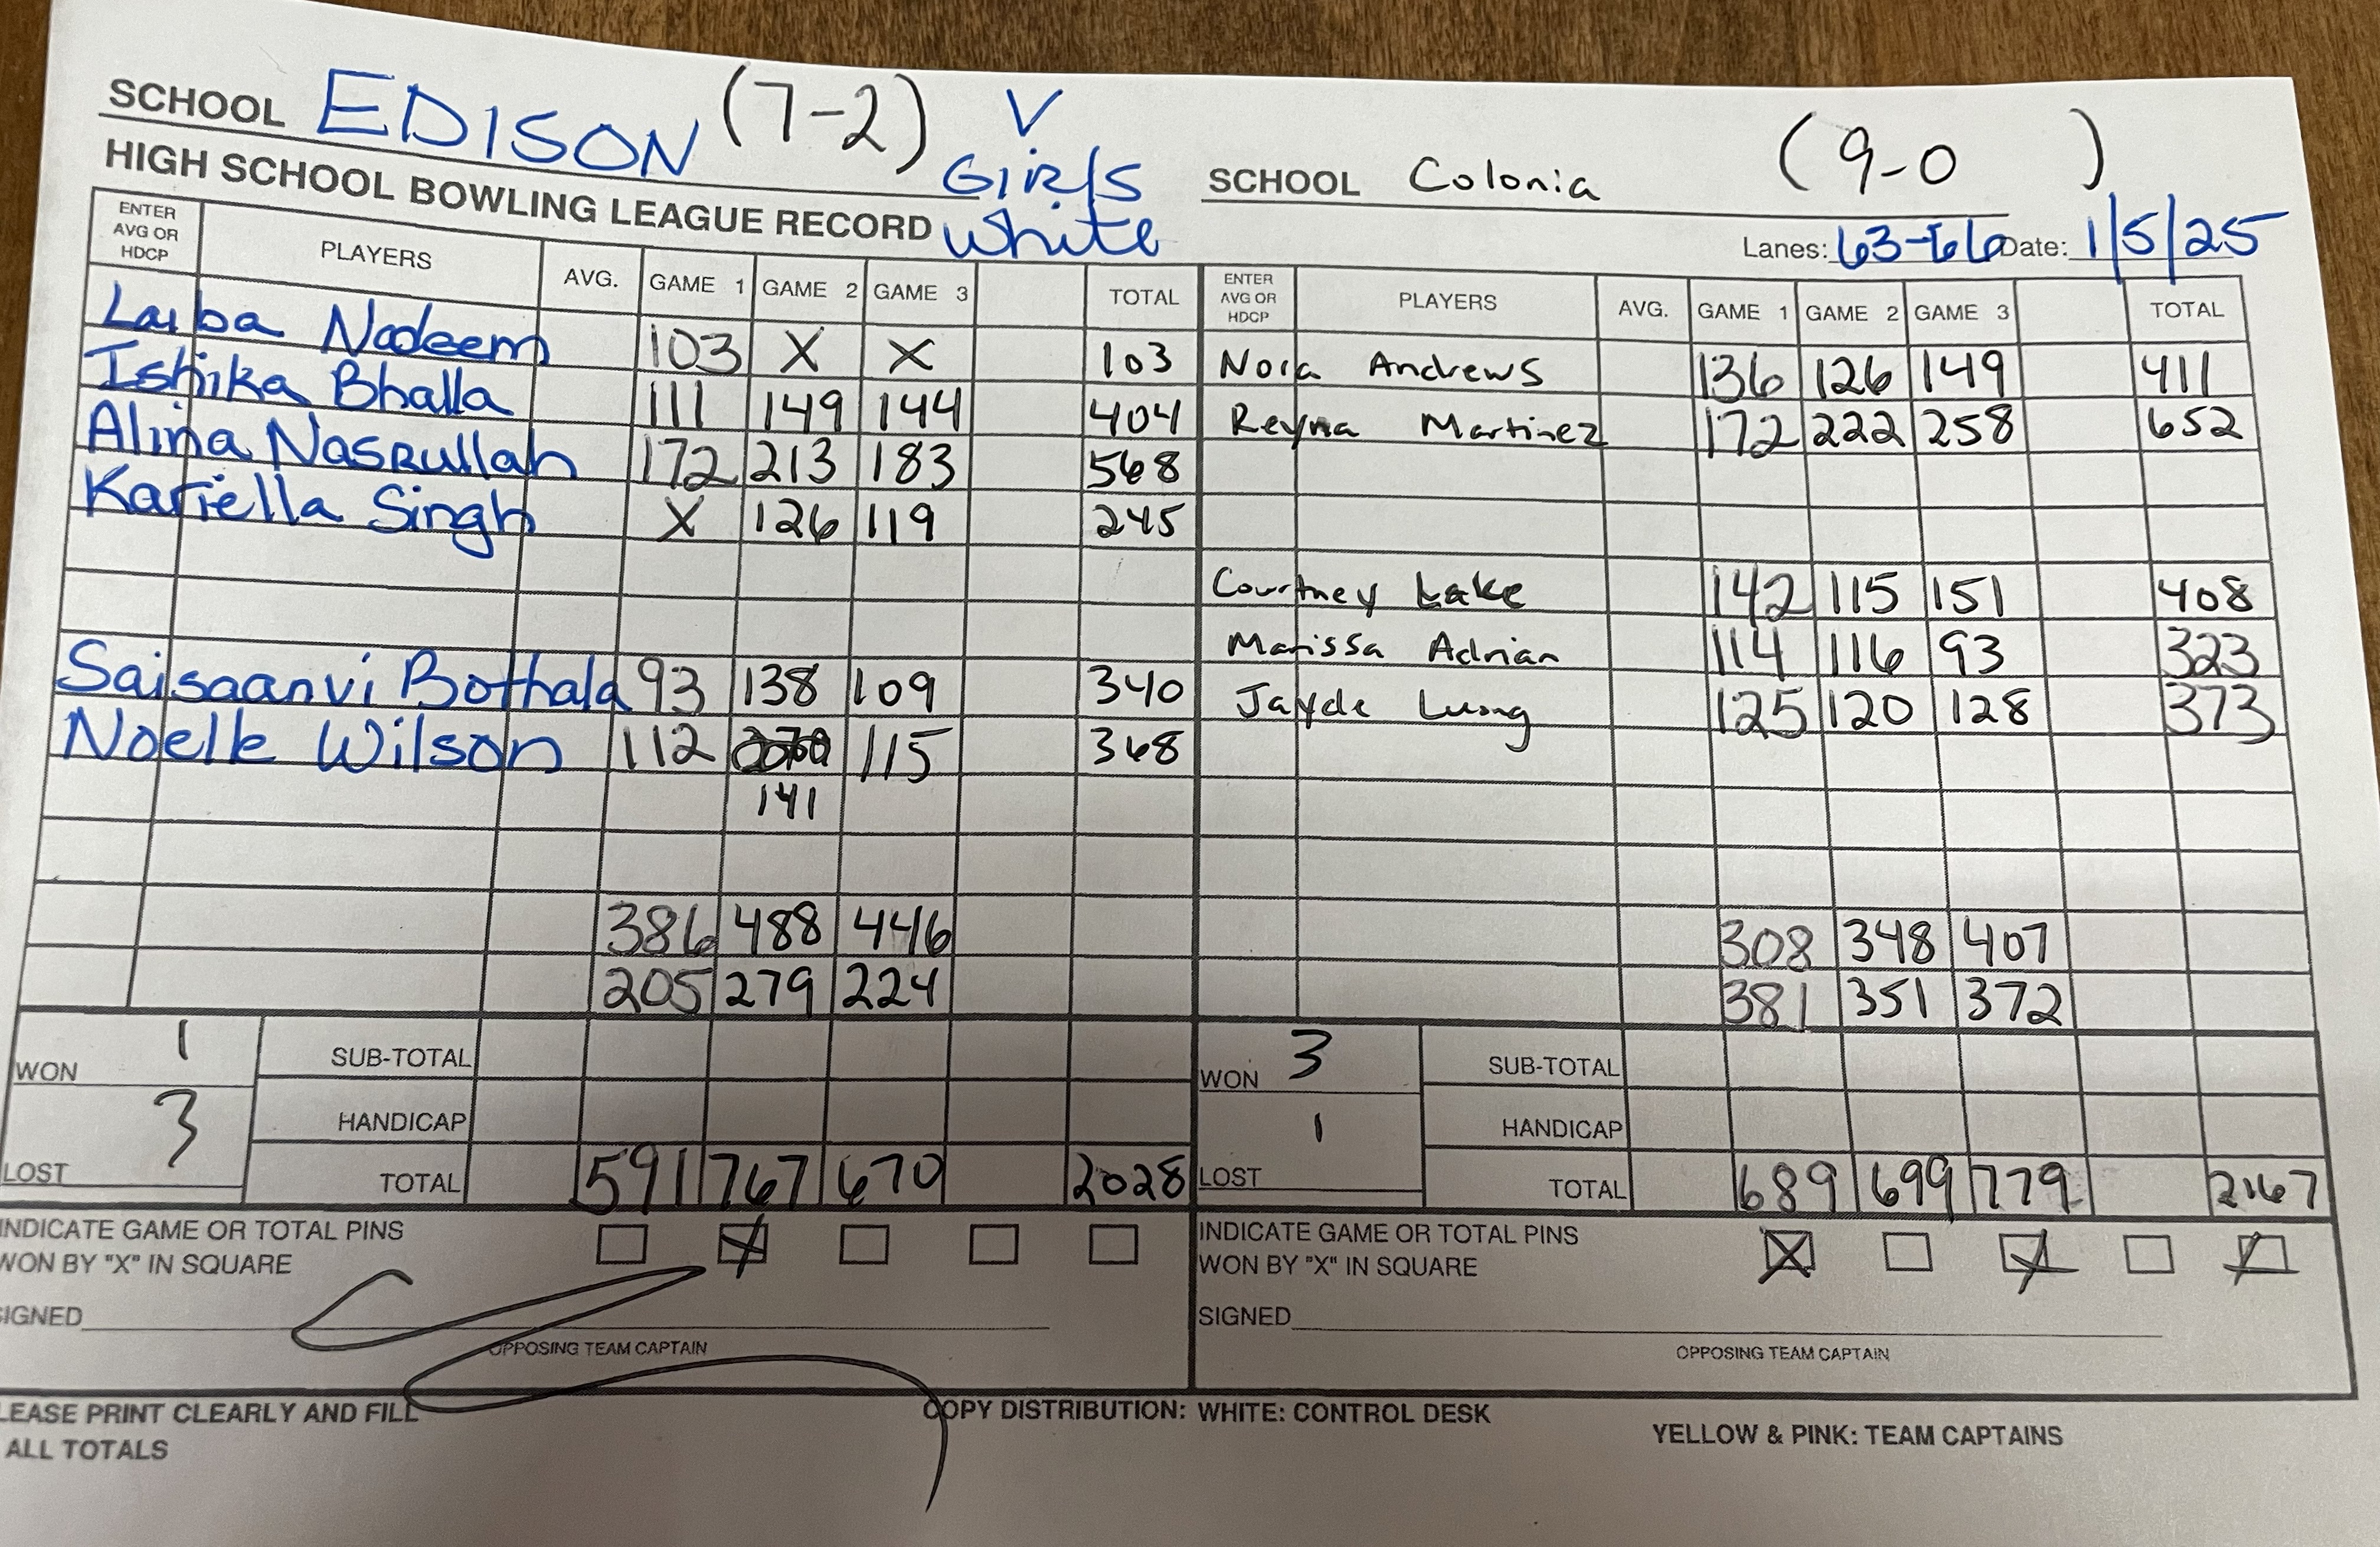 SCHOOL EDISON (7-2) V
Girls
White
HIGH SCHOOL BOWLING LEAGUE RECORD
ENTER AVG OR HDCP PLAYERS AVG. GAME 1 GAME 2 GAME 3 TOTAL
Laiba Nadeem 103 X X 103
Ishika Bhalla 111 149 144 404
Alina Nasrullah 172 213 183 568
Kariella Singh X 126 119 245
Saisaanvi Bothala 93 138 109 340
Noelle Wilson 112 115 368
141
386 488 446
205 279 224
WON 1 SUB-TOTAL
HANDICAP
LOST 3 TOTAL 591 767 670 2028
INDICATE GAME OR TOTAL PINS
WON BY "X" IN SQUARE
SIGNED
OPPOSING TEAM CAPTAIN
SCHOOL Colonia (9-0 )
Lanes: 63-66 Date: 1/5/25
ENTER AVG OR HDCP PLAYERS AVG. GAME 1 GAME 2 GAME 3 TOTAL
Nora Andrews 136 126 149 411
Reyna Martinez 172 222 258 652
Courtney Lake 142 115 151 408
Marissa Adrian 114 116 93 323
Jayde Luong 125 120 128 373
308 348 407
381 351 372
WON 3 SUB-TOTAL
HANDICAP
LOST 1 TOTAL 689 699 779 2167
INDICATE GAME OR TOTAL PINS
WON BY "X" IN SQUARE
SIGNED
OPPOSING TEAM CAPTAIN
LEASE PRINT CLEARLY AND FILL
ALL TOTALS
COPY DISTRIBUTION: WHITE: CONTROL DESK
YELLOW & PINK: TEAM CAPTAINS